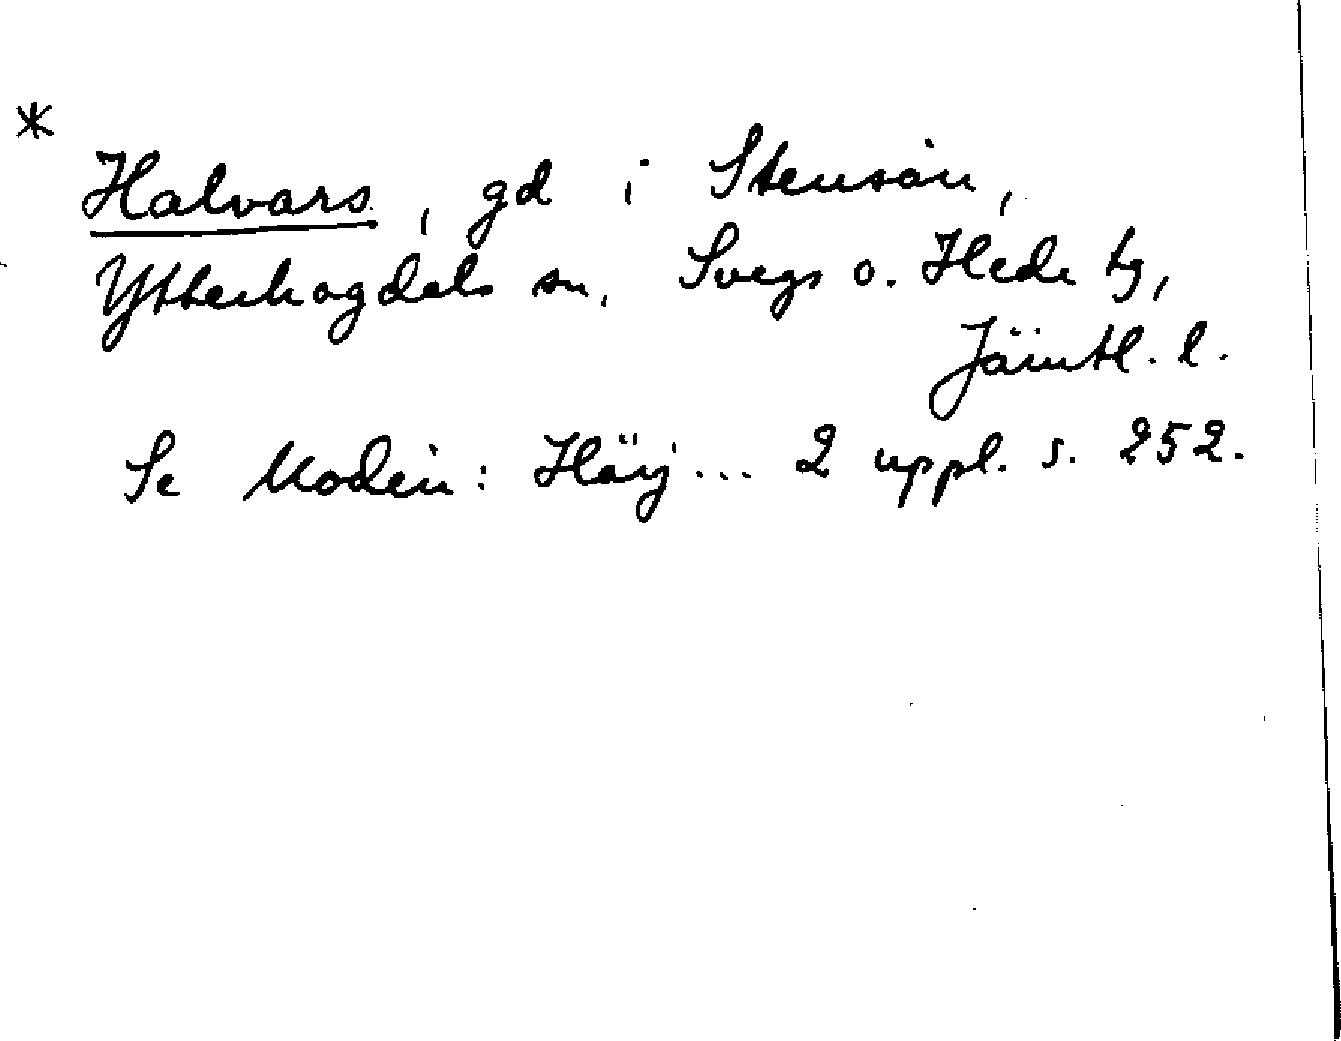 *
Halvars, gd i Stensån,
Ytterhogdals sn, Svegs o. Hede tg,
Jämtl. l.
Se Modin: Härj... 2 uppl. s. 252.